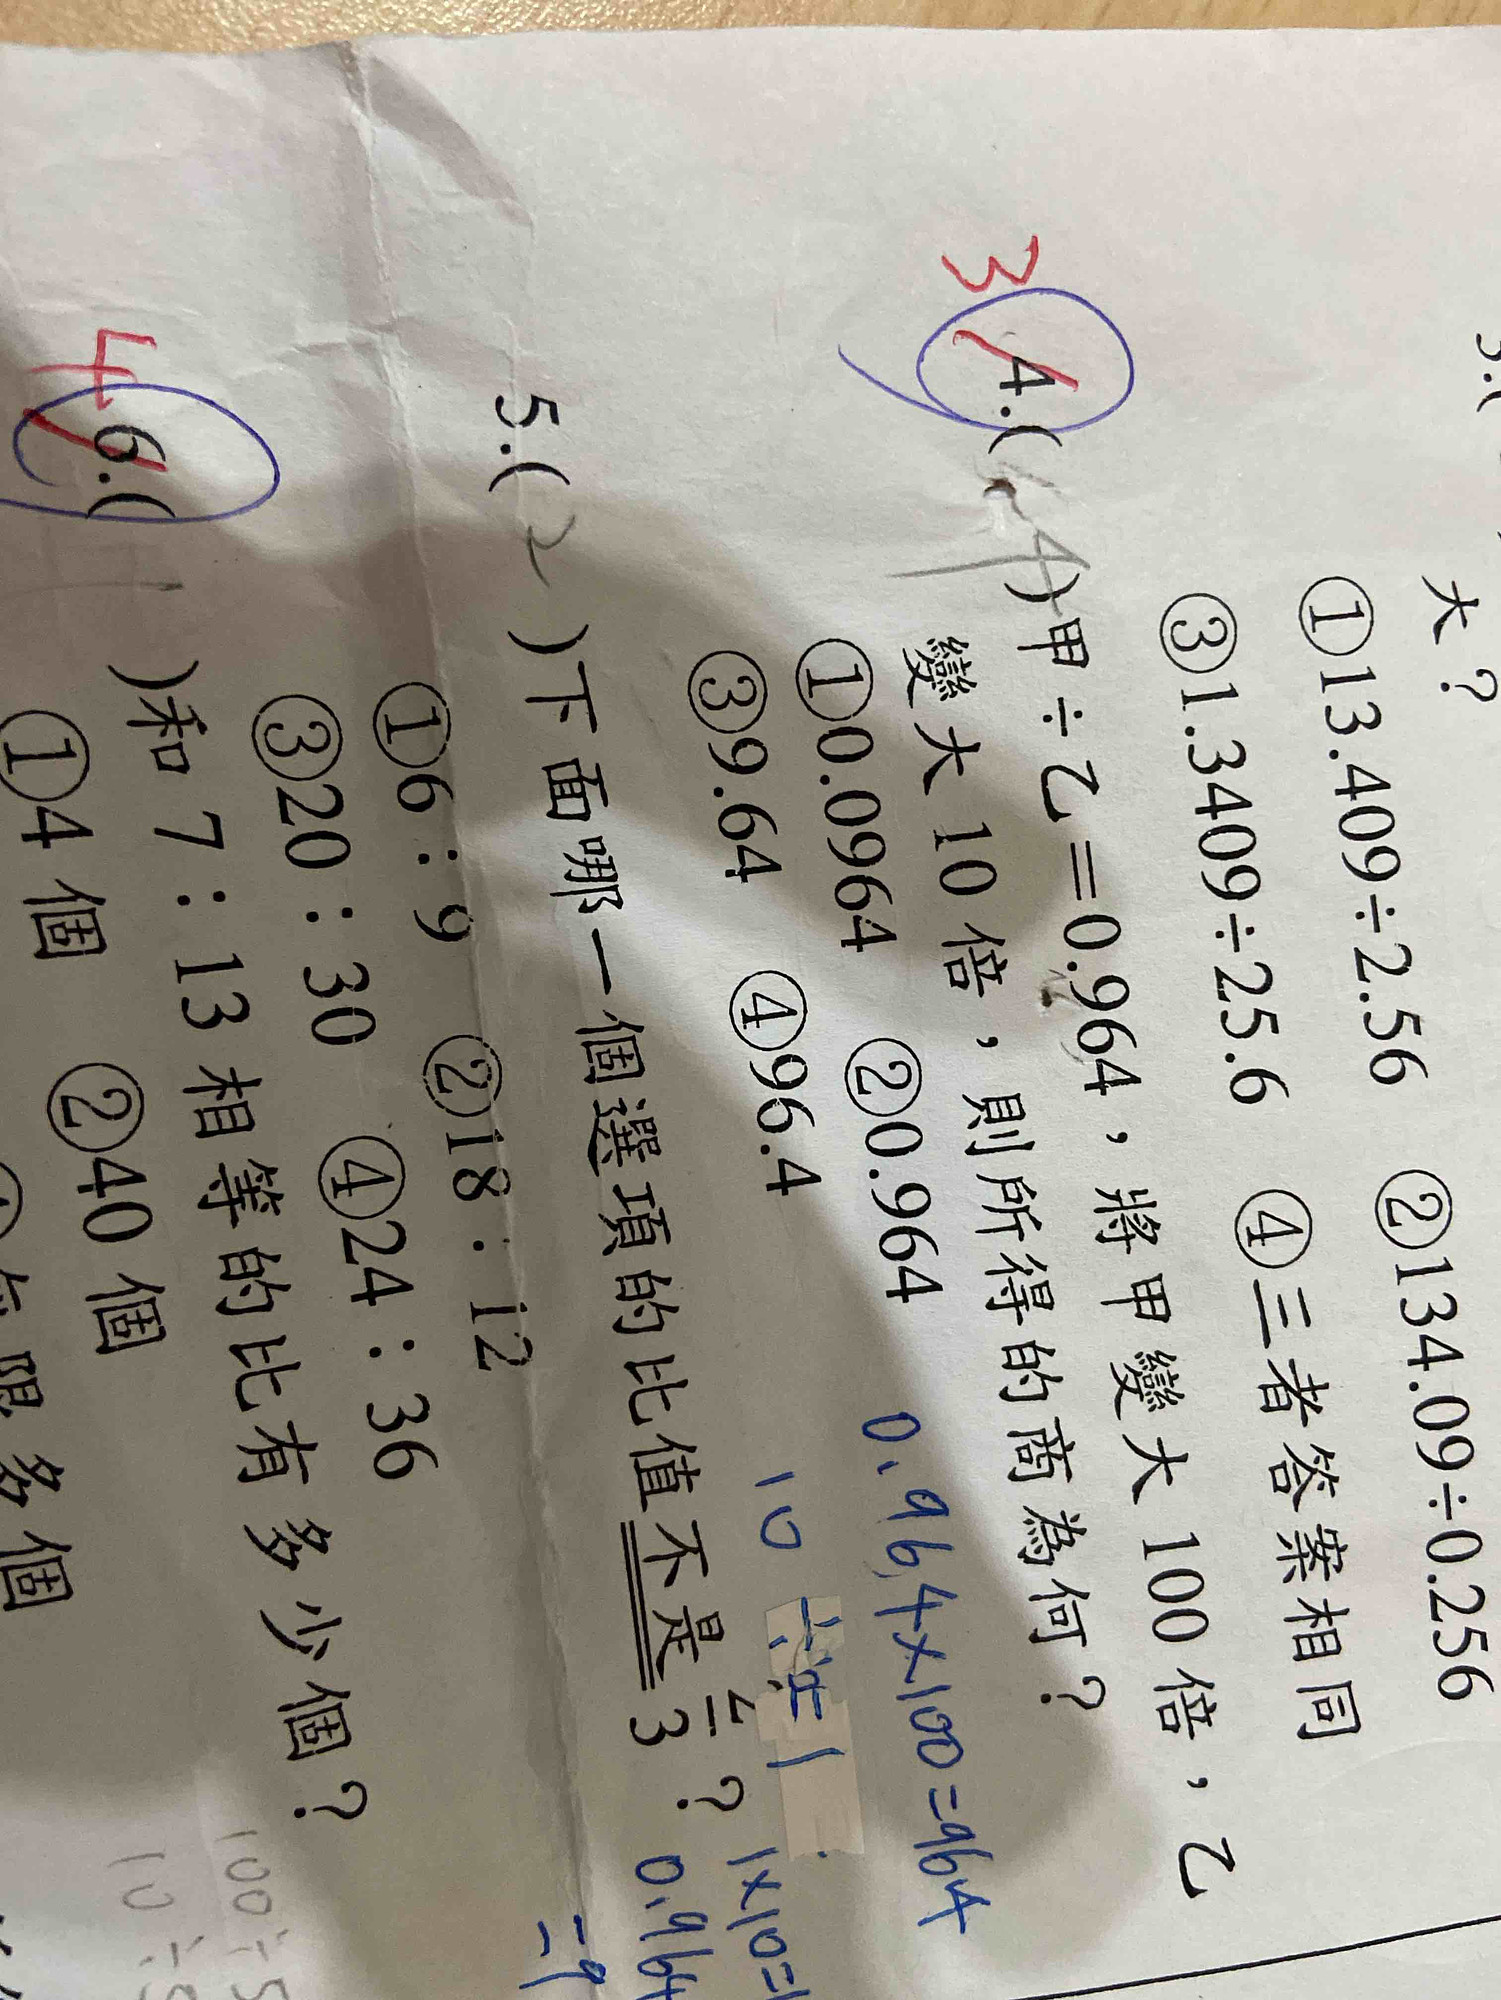 大？
①13.409÷2.56 ②134.09÷0.256
③1.3409÷25.6 ④三者答案相同
3 4.( 4 )甲÷乙＝0.964，將甲變大100倍，乙
變大10倍，則所得的商為何？
①0.0964 ②0.964
③9.64 ④96.4
0.964×100=964
10
1×10=1
0.964
=9
5.( 2 )下面哪一個選項的比值不是2/3？
①6：9 ②18：12
③20：30 ④24：36
4 6.( 1 )和7：13相等的比有多少個？
①4個 ②40個
限多個
100÷5
10÷5